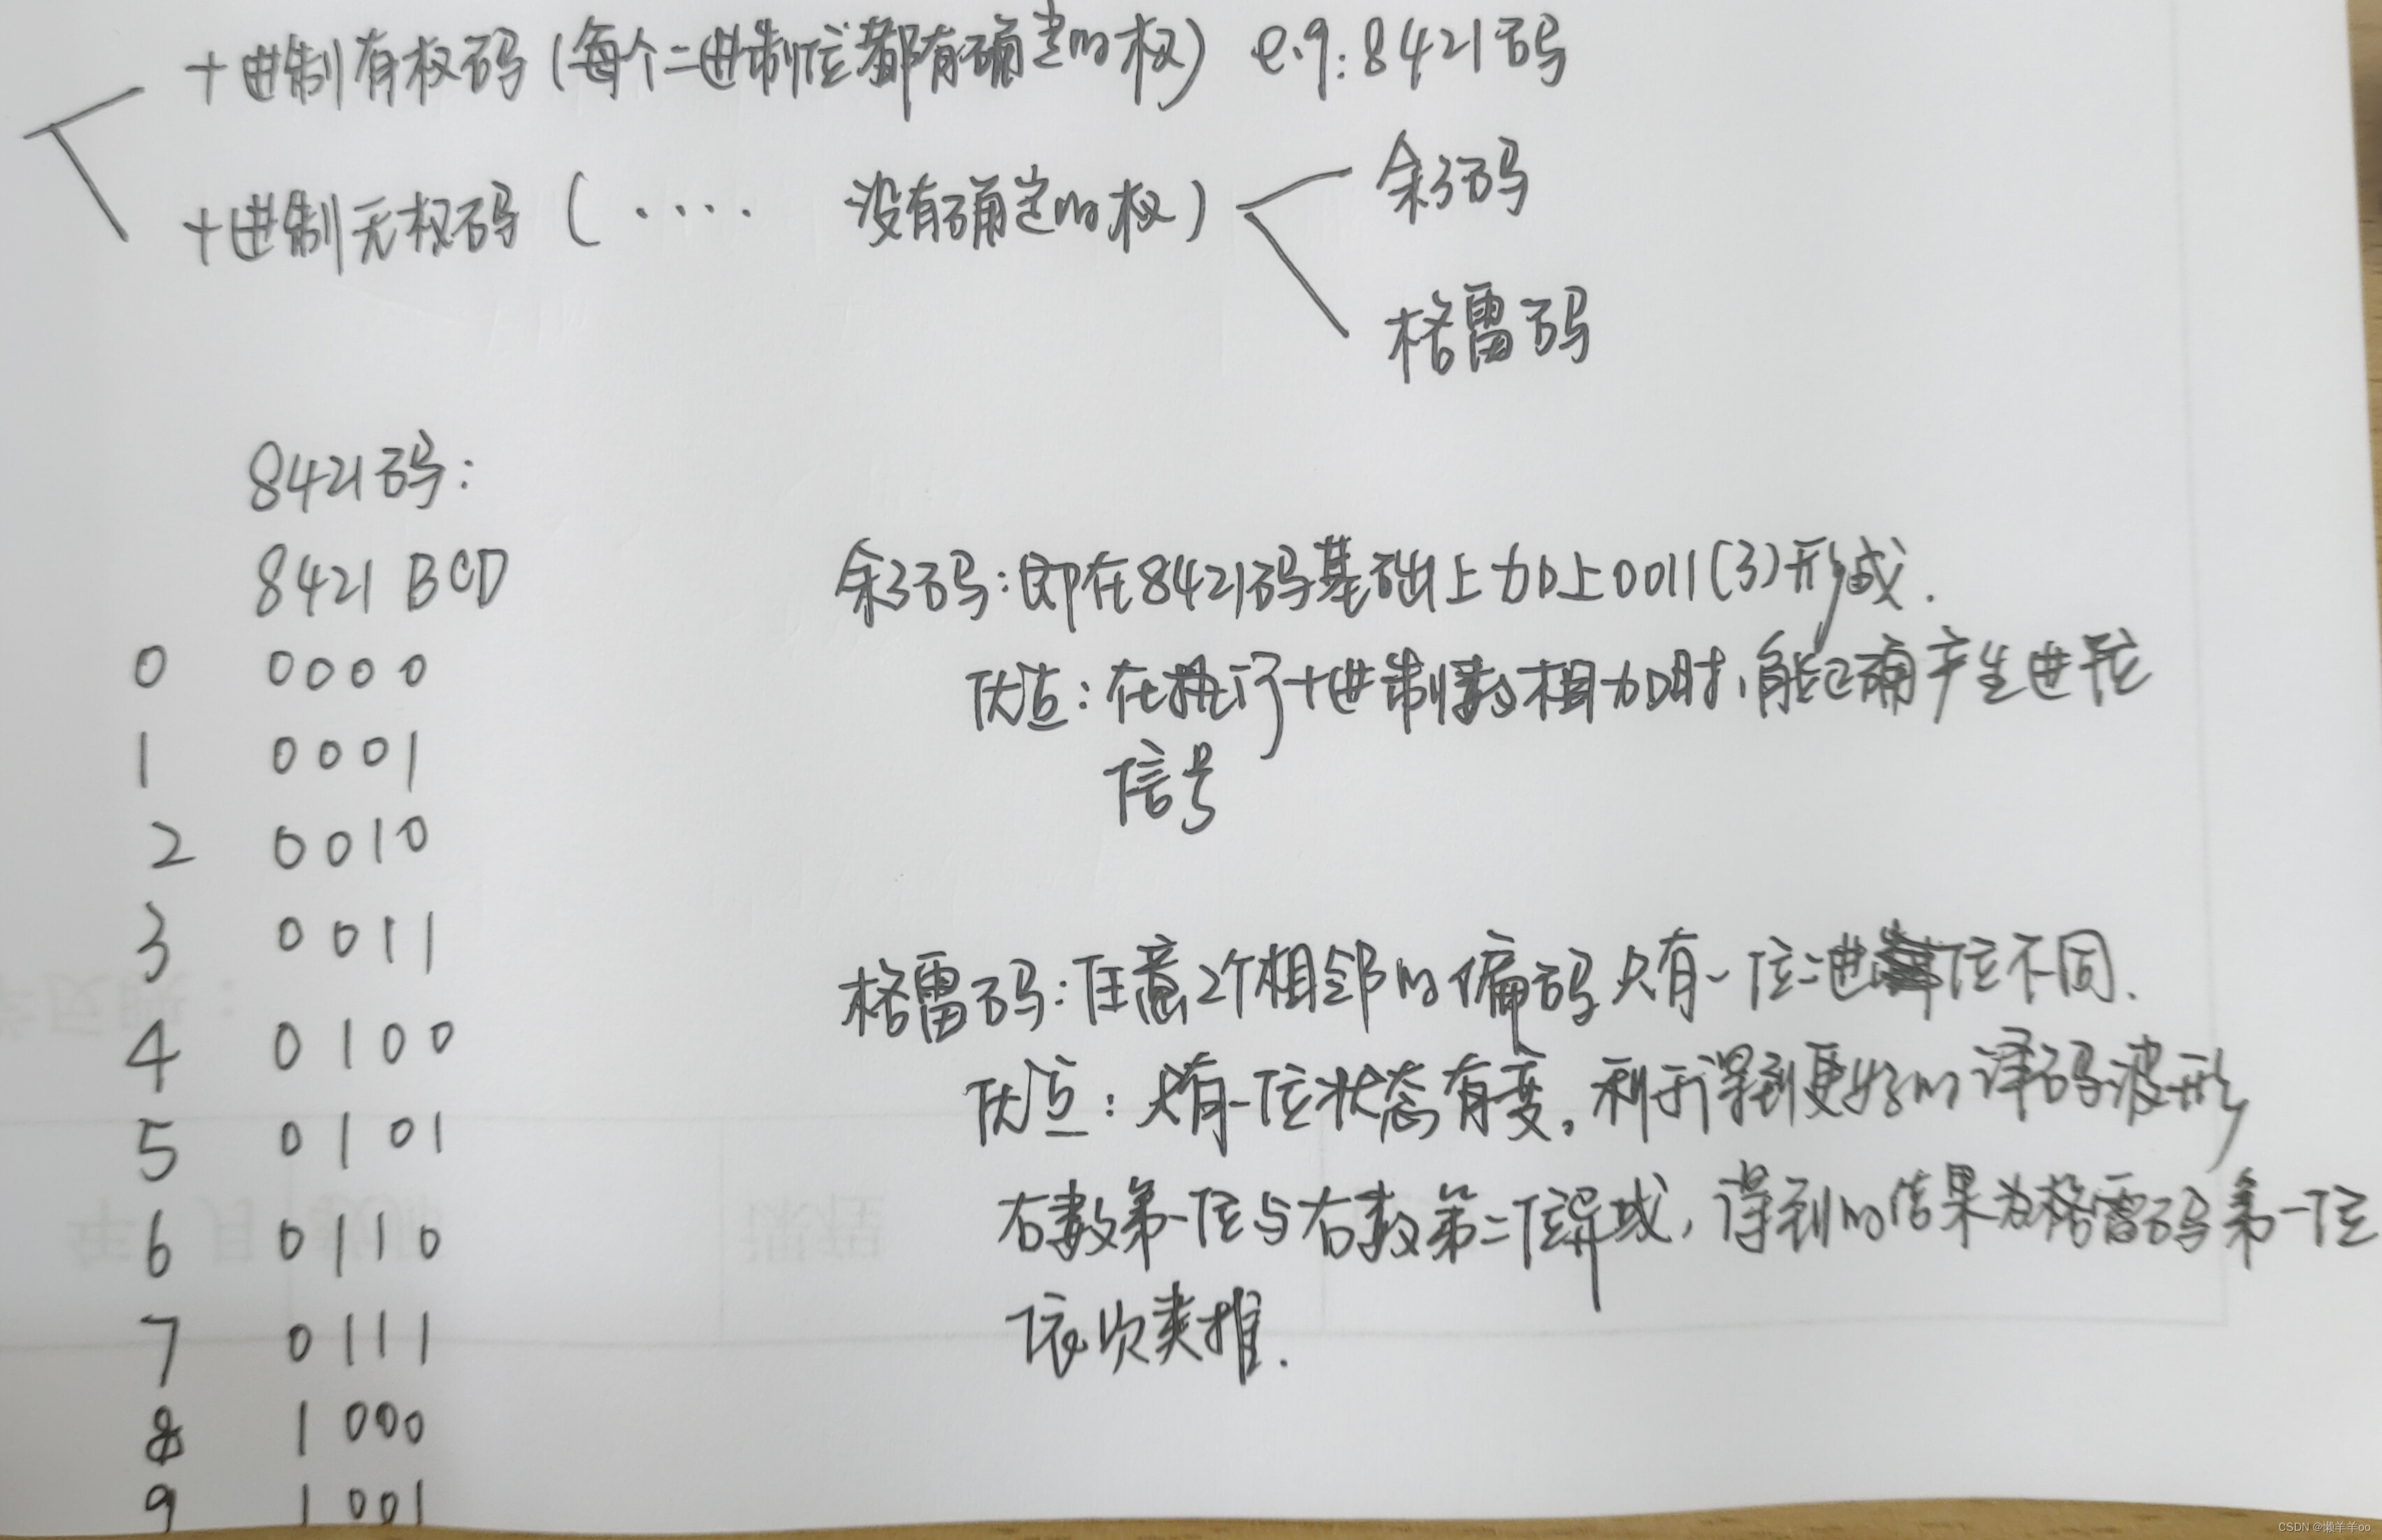 十进制有权码(每个二进制位都有确定的权) e.g:8421码
十进制无权码( .... 没有确定的权)
余3码
格雷码
8421码:
8421 BCD
0 0000
1 0001
2 0010
3 0011
4 0100
5 0101
6 0110
7 0111
8 1000
9 1001
余3码:即在8421码基础上加上0011(3)形成.
优点:在执行十进制数相加时,能正确产生进位
信号
格雷码:任意2个相邻的编码只有一位二进位不同.
优点:只有一位状态有变。利于得到更好的译码波形
右数第一位与右数第二位异或,得到的结果为格雷码第一位
依次类推.
CSDN @懒羊羊oo